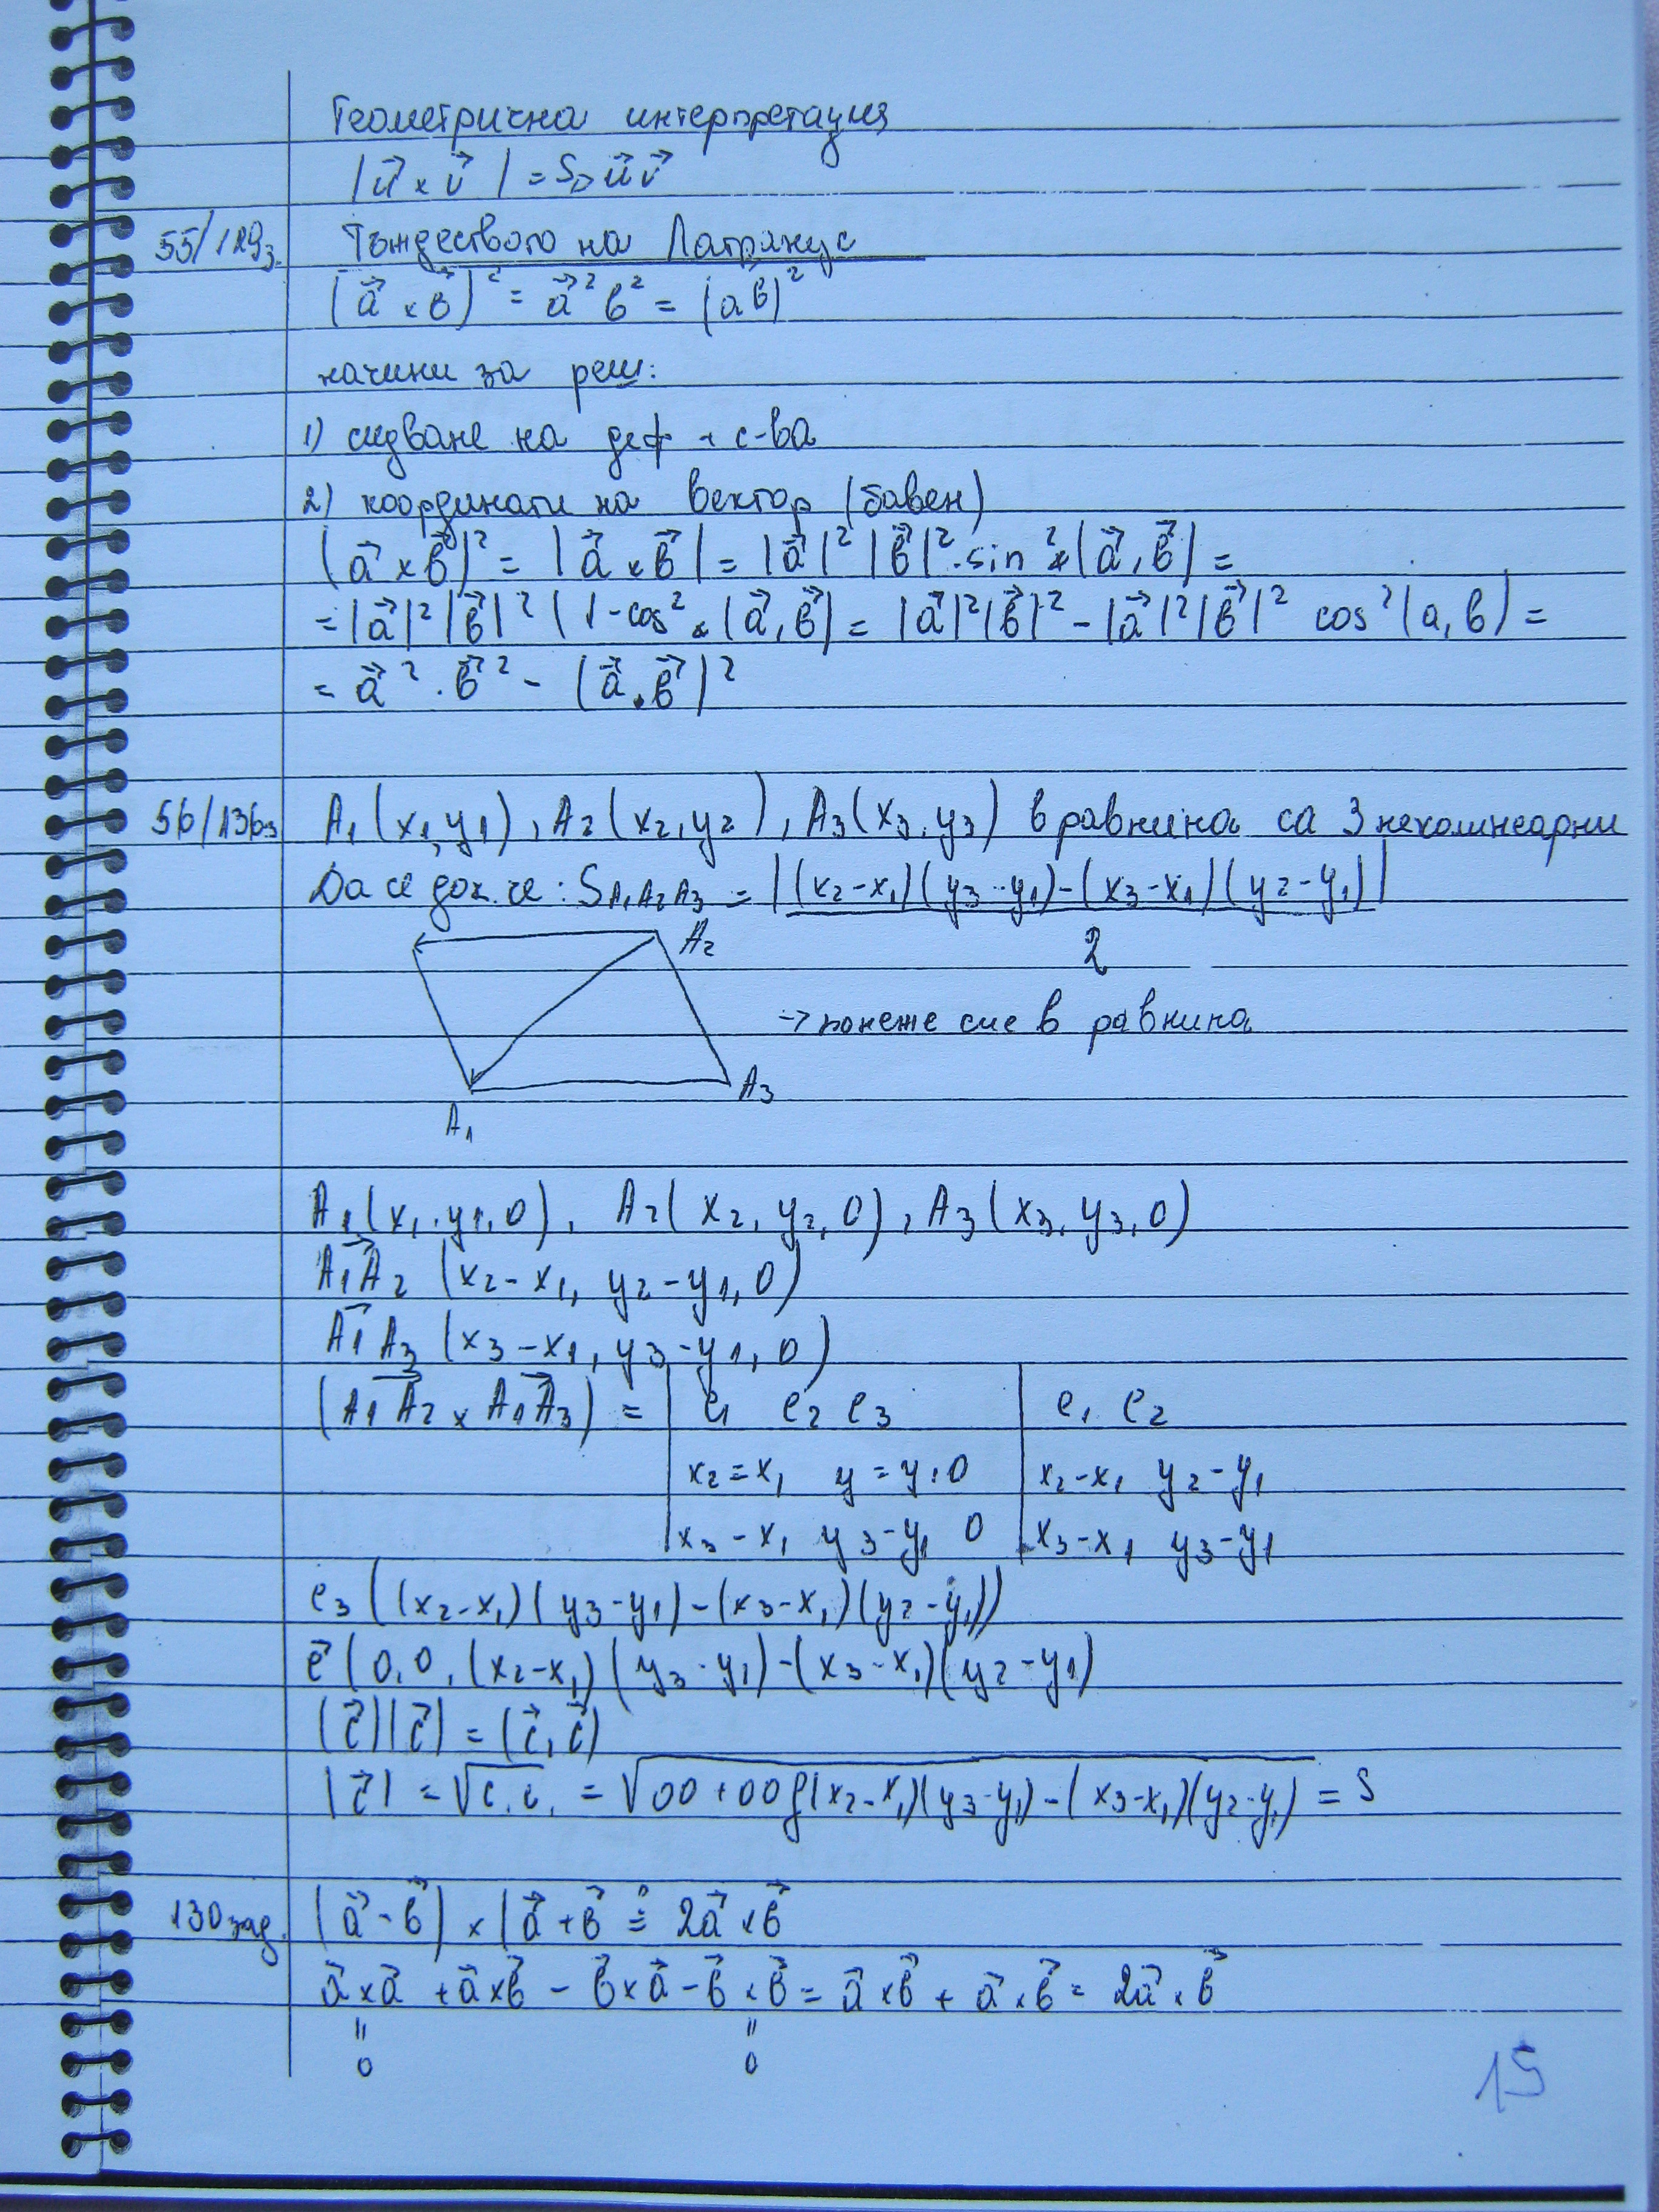 Геометрична интерпретация
|u⃗ × v⃗| = S▱ u⃗ v⃗
55/129з. Тъждеството на Лагранж
(a⃗ × b⃗)² = a⃗² b² = (ab)²
начини за реш:
1) следване на деф + с-ва
2) координати на вектор (бавен)
(a⃗ × b⃗)² = |a⃗ × b⃗| = |a⃗|² |b⃗|² . sin² ∢(a⃗, b⃗) =
= |a⃗|² |b⃗|² (1 - cos² ∢(a⃗, b⃗) = |a⃗|² |b⃗|² - |a⃗|² |b⃗|² cos² (a, b) =
= a⃗² . b⃗² - (a⃗ . b⃗)²
56/136з A₁(x₁, y₁), A₂(x₂, y₂), A₃(x₃, y₃) в равнина са 3 неколинеарни
Да се док. че: S A₁A₂A₃ = |(x₂-x₁)(y₃-y₁)-(x₃-x₁)(y₂-y₁)|
2
A₂
→ понеже сме в равнина
A₃
A₁
A₁(x₁, y₁, 0), A₂(x₂, y₂, 0), A₃(x₃, y₃, 0)
A₁A₂ (x₂-x₁, y₂-y₁, 0)
A₁A₃ (x₃-x₁, y₃-y₁, 0)
(A₁A₂ × A₁A₃) = | e₁ e₂ e₃ | e₁ e₂
x₂=x₁ y=y₁ 0 | x₂-x₁ y₂-y₁
x₃-x₁ y₃-y₁ 0 | x₃-x₁ y₃-y₁
e₃((x₂-x₁)(y₃-y₁)-(x₃-x₁)(y₂-y₁))
c⃗ (0, 0, (x₂-x₁)(y₃-y₁)-(x₃-x₁)(y₂-y₁)
|c⃗||c⃗| = (c⃗, c⃗)
|c⃗| = √c.c. = √00+00 (x₂-x₁)(y₃-y₁)-(x₃-x₁)(y₂-y₁) = S
130 зад. (a⃗ - b⃗) × (a⃗ + b⃗ =? 2a⃗ × b⃗
a⃗ × a⃗ + a⃗ × b⃗ - b⃗ × a⃗ - b⃗ × b⃗ = a⃗ × b⃗ + a⃗ × b⃗ = 2a⃗ × b⃗
" "
0 0
15